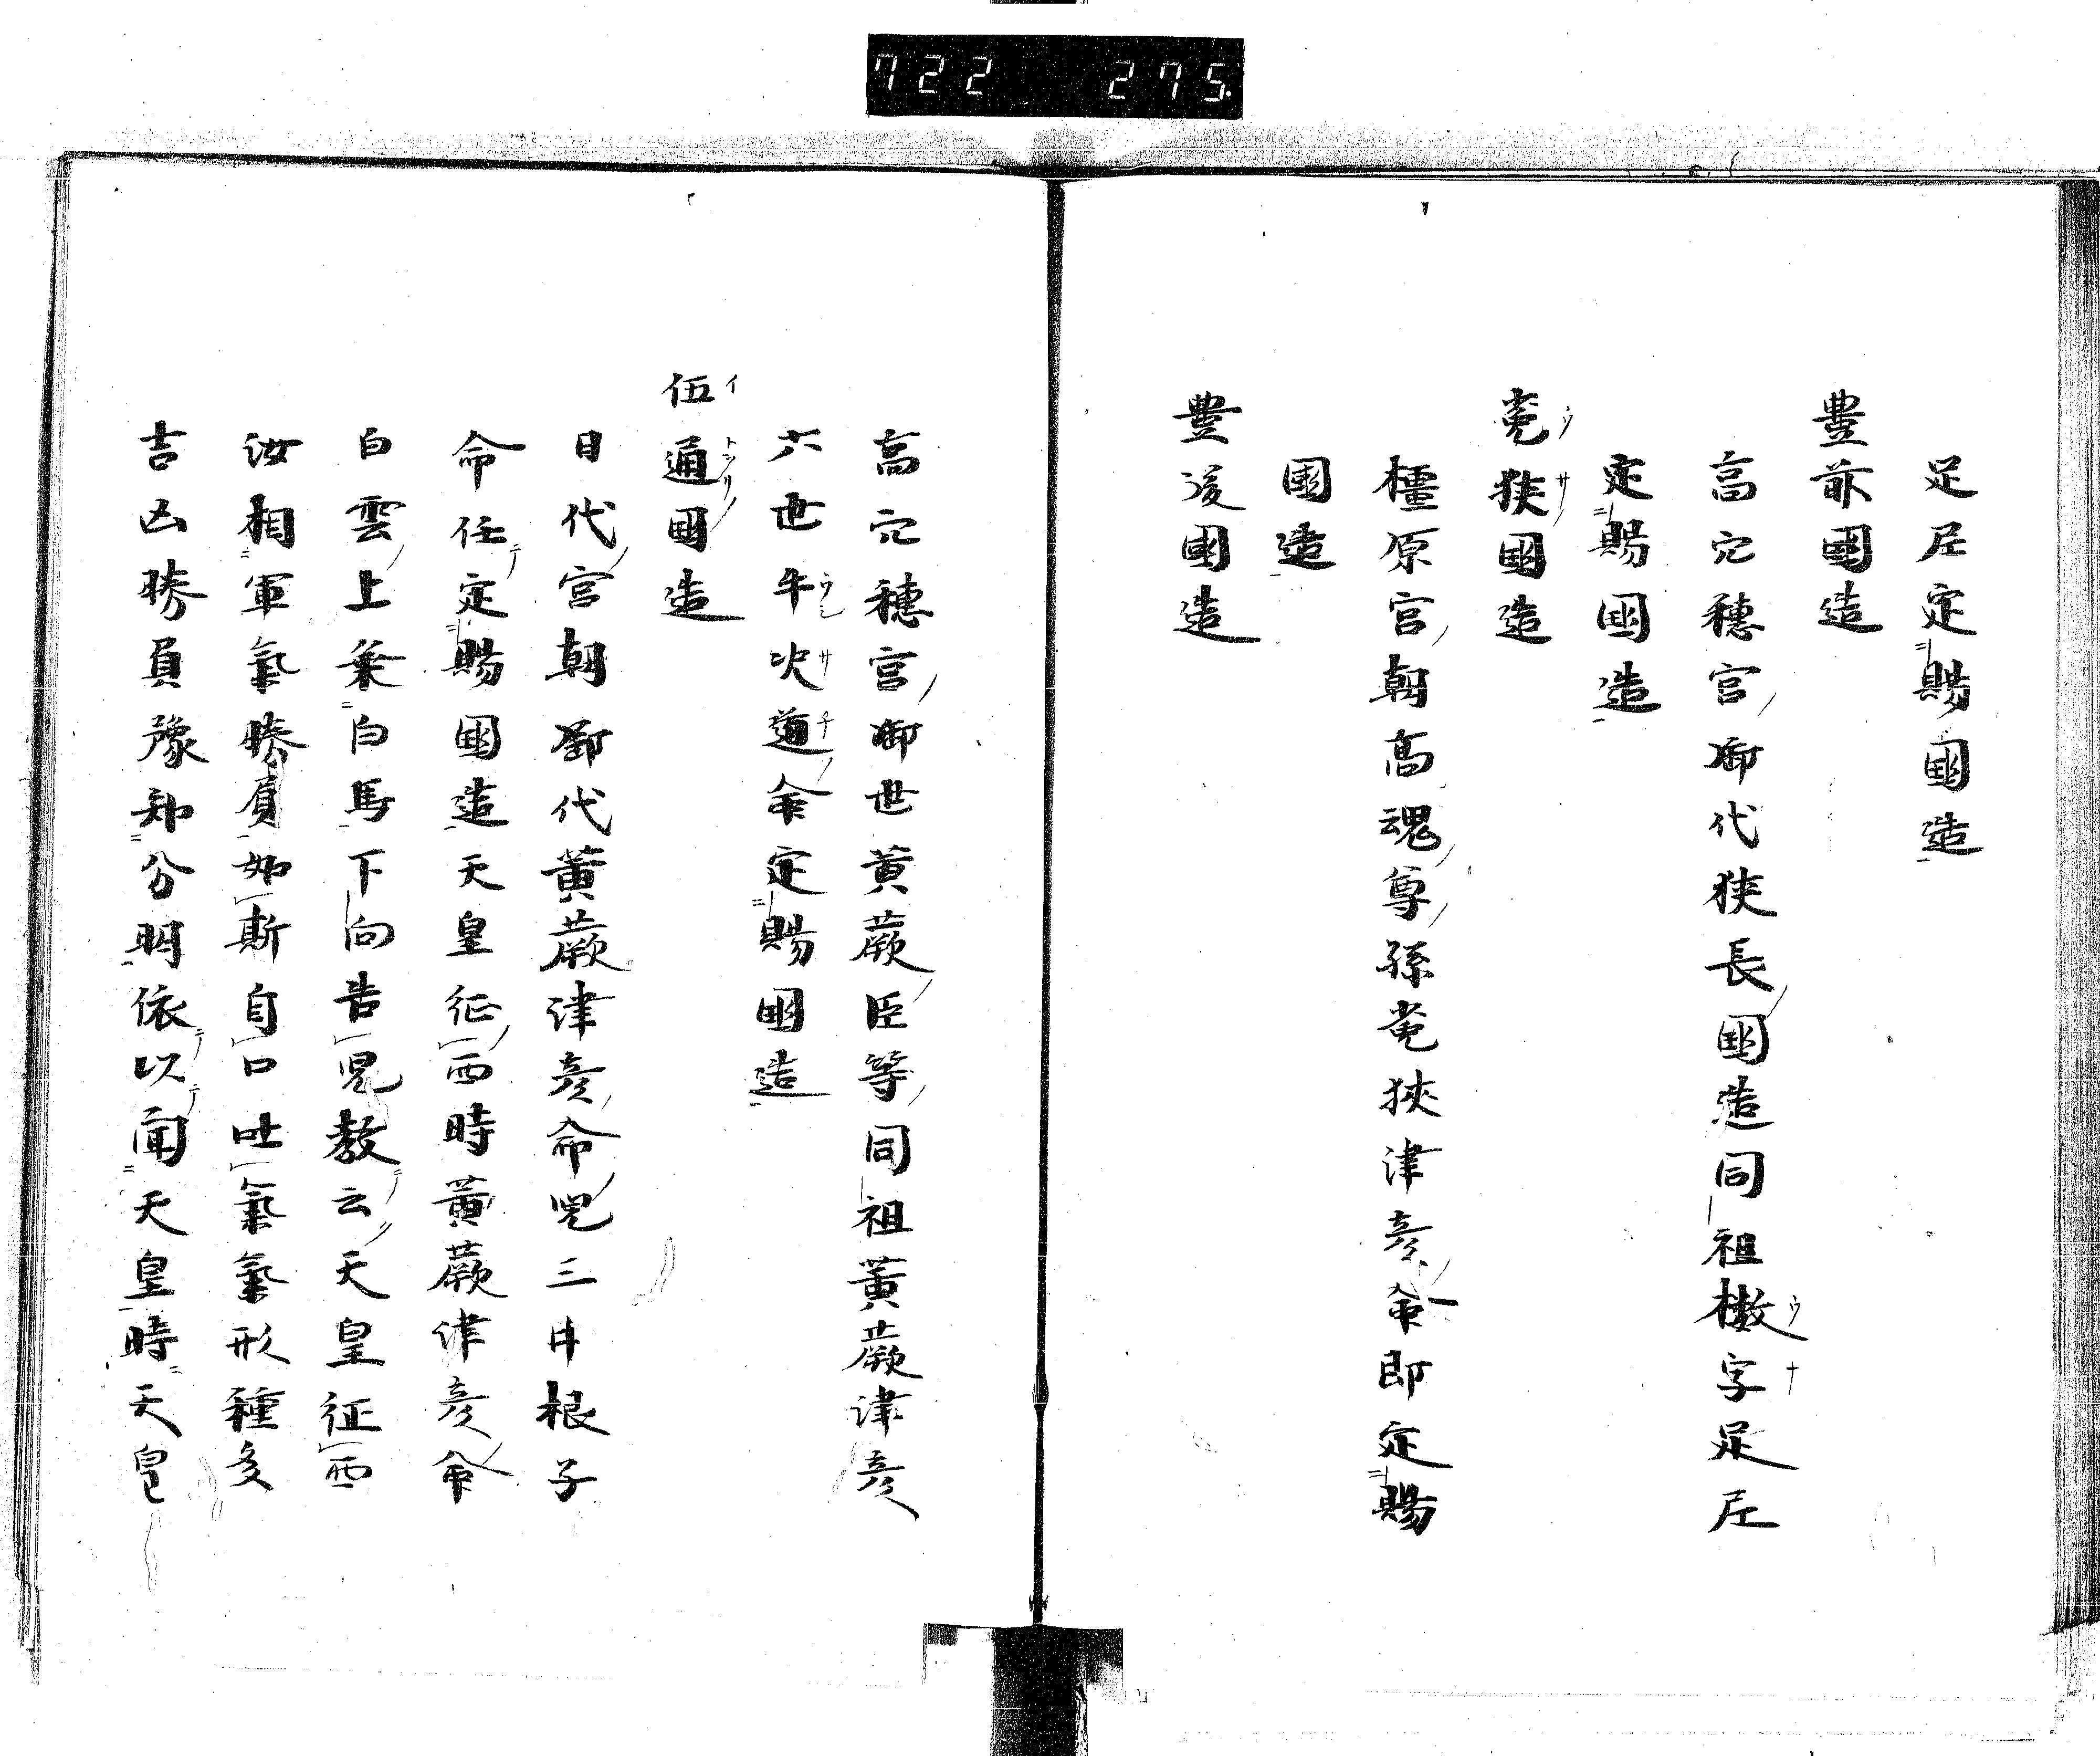 722 275
足尼定賜國造
豊前國造
高穴穗宮御代狹長國造同祖㯚字足尼
定賜國造
菟狹國造
橿原宮朝高魂尊孫菟狹津彦命即定賜
國造
豊後國造
高穴穗宮御世黃蕨臣等同祖黃蕨津彦
六世午次道命定賜國造
伍通國造
日代宮朝御代黃蕨津彦命兒三井根子
命任定賜國造天皇征西時黃蕨津彦命
白雲上乗白馬下向告兒教云天皇征西
汝相軍氣勝負如斯自口吐氣氣形種多
吉凶勝負豫知分明依以聞天皇時天皇